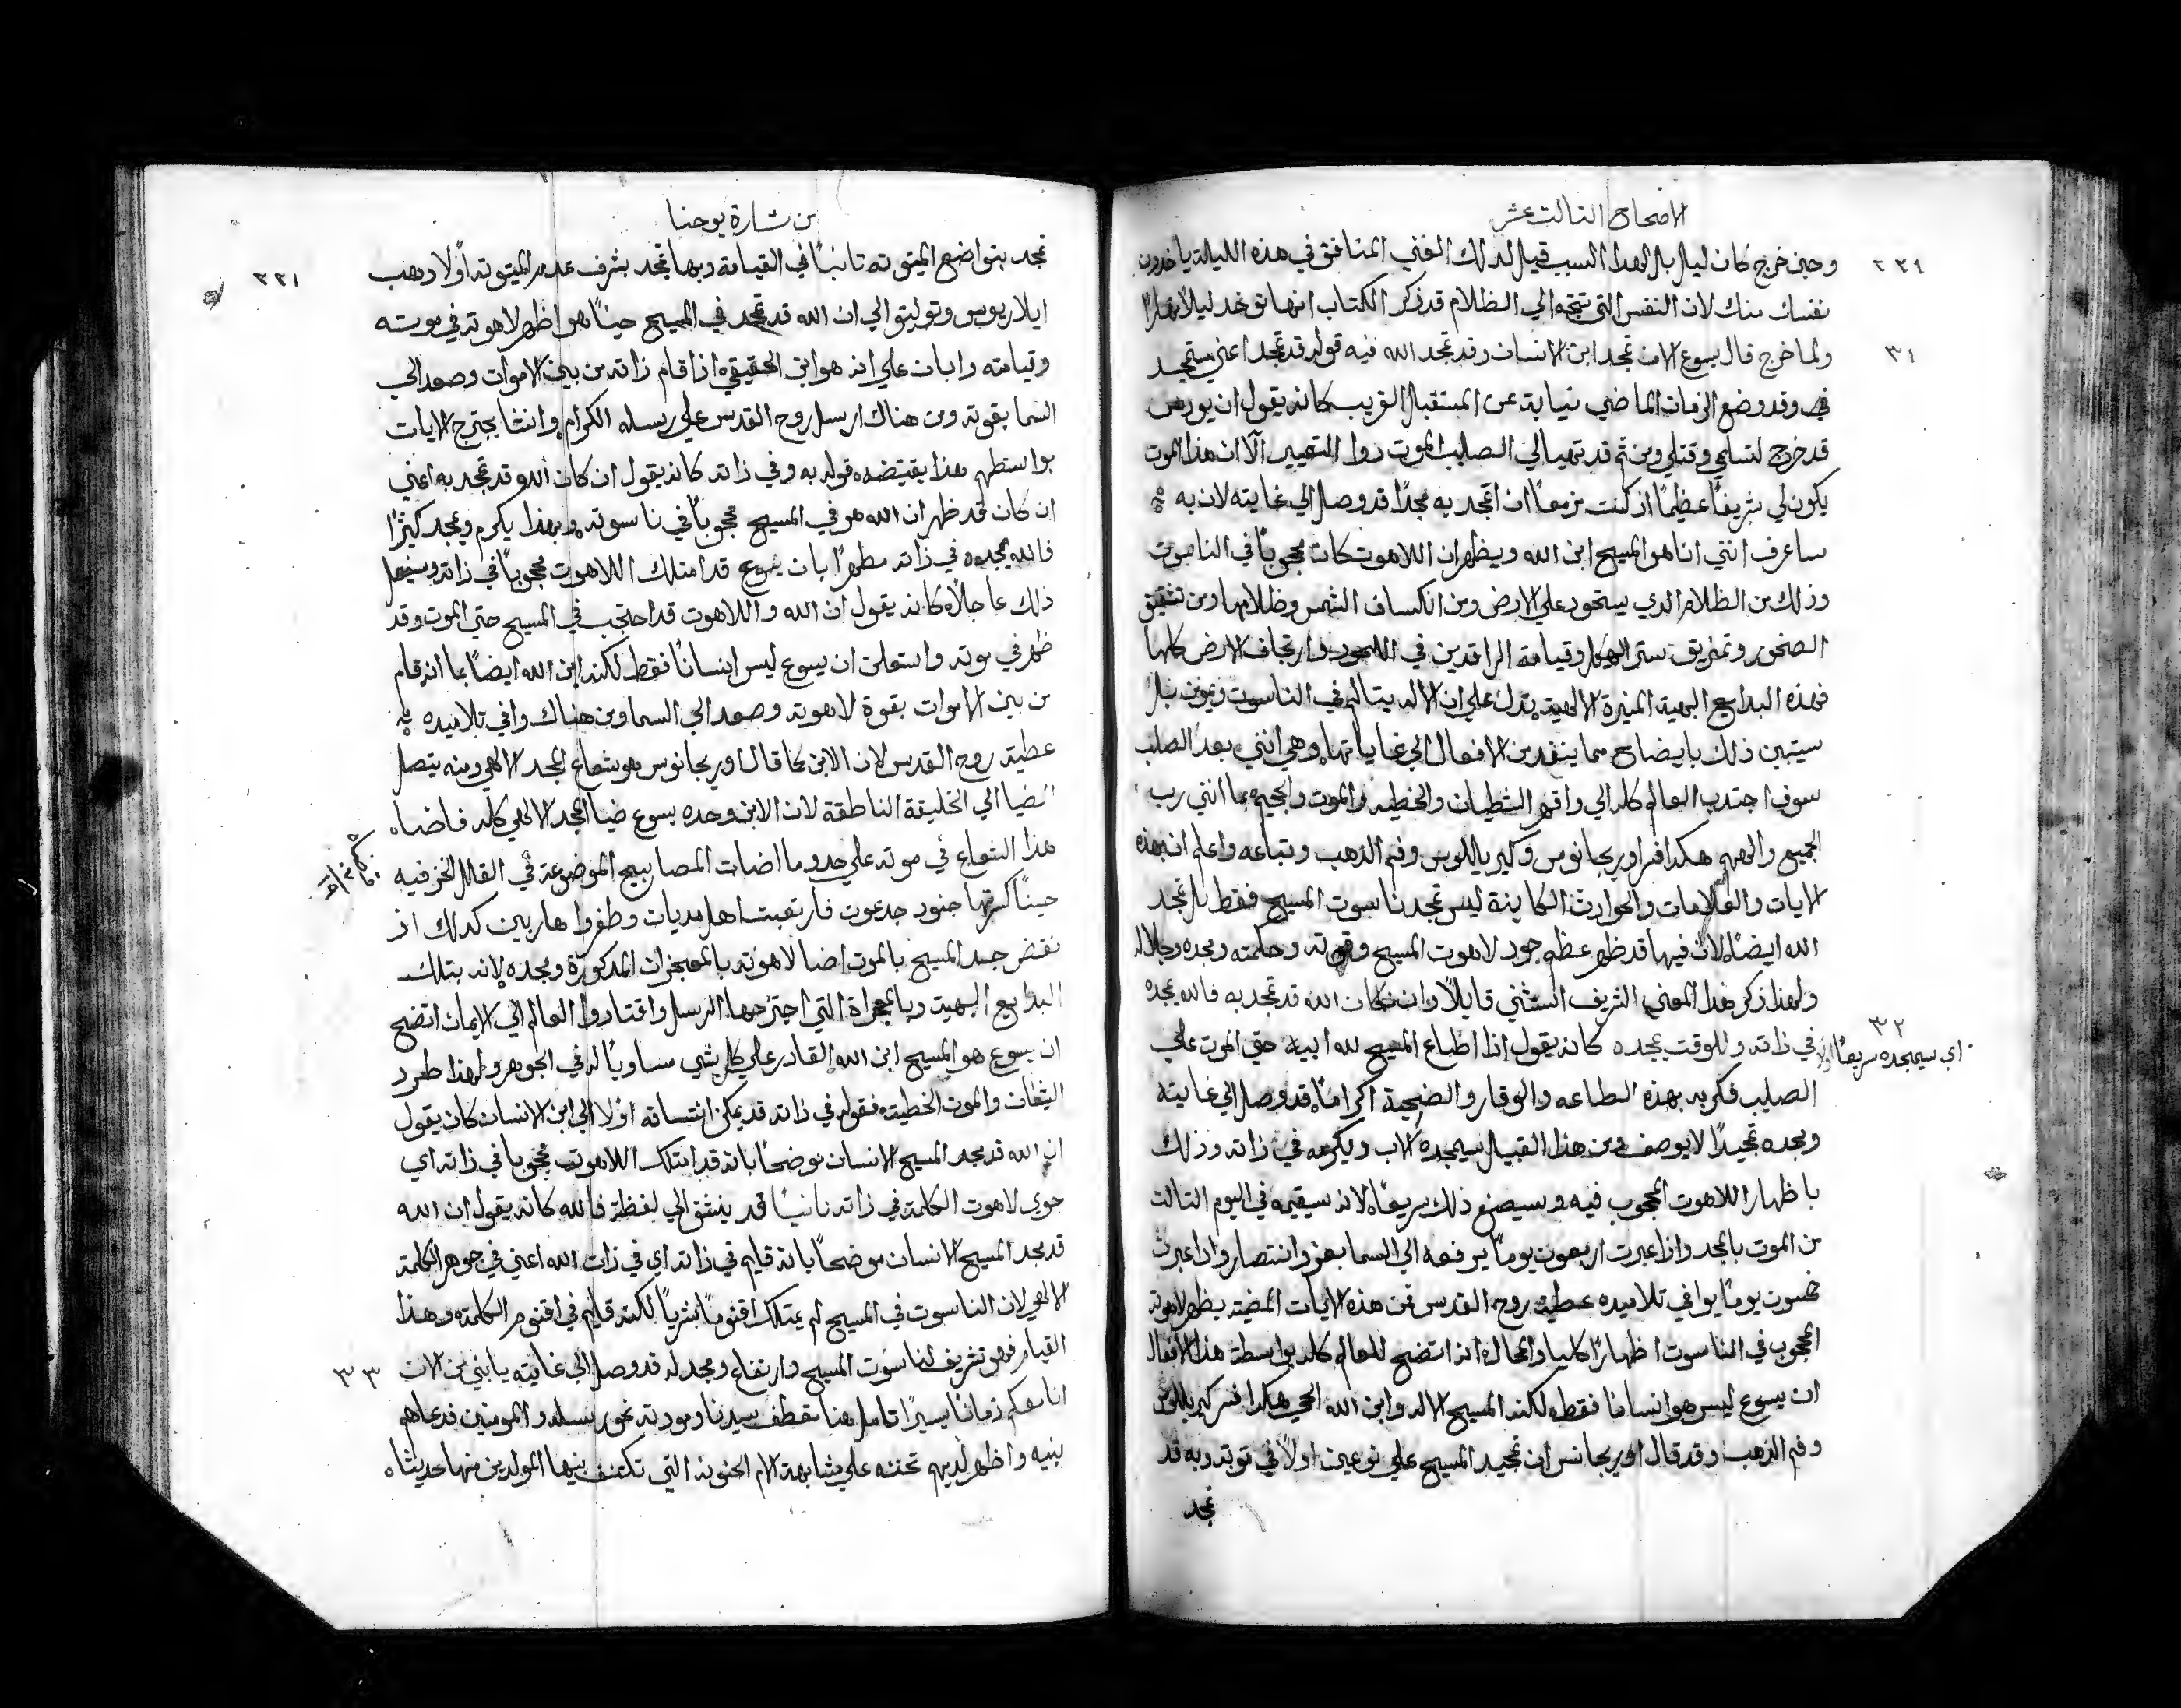 الاصحاح التالت عشر
وحين خرج كان ليل بل لهدا السبب قيل لدلك الغني المنافق في هذه الليله ياخدون
نفسك منك لان النفس التي تتجه الي الظلام قد ذكر الكتاب انها توخد ليلاً لا نهارًا
٣١
ولما خرج قال يسوع الان تمجد ابن الانسان وقد تمجد الله فيه قوله قد تمجد اعني ستمجد
في وقد وضع الزمان الماضي نيابة عن المستقبل القريب كانه يقول ان يودس
قد خرج لتسليمي وقتلي ومن ثم قد تهيا لي الصليب الموت دوا التعيير الا ان هذا الموت
يكون لي شريفًا عظيمًا اذ كنت مزمعًا ان اتمجد به مجدًا قد وصل الي غايته لان به
ساعرف انني انا هو المسيح ابن الله ويظهر ان اللاهوت كان محجوبًا في الناسوت
وذلك من الظلام الدي يستحود علي الارض ومن انكساف الشمس وظلامها ومن تشقيق
الصخور وتمزيق ستر الهيكل وقيامة الراقدين في اللحود وارتجاف الارض كلها
فهذه البدايع البهية المنيرة الالهية تدل علي ان الاله يتالم في الناسوت ويموت بل
سيتبين ذلك بايضاح مما ينفد من الافعال الي غاياتها وهي انني بعد الصلب
سوف اجتدب العالم كله الي واقهر الشيطان والخطيه والموت والجحيم بما انني رب
الجميع والههم هكدا فسر اوريجانوس وكيرياللوس وفم الذهب وتباعه واعلم ان بهذه
الايات والعلامات والحوادث الكاينة ليس تمجد ناسوت المسيح فقط بل تمجد
الله ايضًا لان فيها قد ظهر عظم جود لاهوت المسيح وقوته وحكمته ومجده وجلاله
ولهذا ذكر هذا المعني الشريف السني قايلاً وان كان الله قد تمجد به فالله يمجده
٣٢
في ذاته وللوقت يمجده كانه يقول اذا اطاع المسيح لله ابيه حتي الموت علي
اي سيمجده سريعًا
الصليب فكرمه بهذه الطاعه والوقار والضحية اكرامًا قد وصل الي غايته
ومجده تمجيدًا لا يوصف ومن هذا القبيل سيمجده الاب ويكرمه في ذاته وذلك
باظهار اللاهوت المحجوب فيه وسيصنع ذلك سريعًا لانه سيقيمه في اليوم التالت
من الموت بالمجد واذا عبرت اربعون يومًا يرفعه الي السما بعز وانتصار واذا عبرت
خمسون يومًا يوافي تلاميده عطية روح القدس فمن هذه الايات المضية يظهر لاهوته
المحجوب في الناسوت اظهارًا كليا والحال انه اتضح للعالم كله بواسطة هذه الافعال
ان يسوع ليس هو انسانا فقط لكنه المسيح الاله وابن الله الحي هكدا فسر كيرياللوس
وفم الذهب وقد قال اوريجانس ان تمجيد المسيح علي نوعين اولاً في موته وبه قد
تمجد
من بشارة يوحنا
٢٣١
تمجد بتواضع الميتوته تانيًا في القيامة وبها تمجد بشرف عدم الميتوته اولا ودهب
ايلاريوس وتوليتو الي ان الله قد تمجد في المسيح حينًا هو اظهر لاهوته في موته
وقيامته وابان علي انه هو ابن الحقيقي اذ اقام ذاته من بين الاموات وصعد الي
السما بقوته ومن هناك ارسل روح القدس علي رسله الكرام وانشا يجترح الايات
بواسطتهم هذا يقتضيه قوله به وفي ذاته كانه يقول ان كان الله قد تمجد به اعني
ان كان قد ظهر ان الله هو في المسيح محجوبًا في ناسوته وبهذا يكرم ويمجد كثيرًا
فالله يمجده في ذاته مظهرًا بان يسوع قد امتلك اللاهوت محجوبًا في ذاته وسيفعل
ذلك عاجلاً كانه يقول ان الله واللاهوت قد احتجب في المسيح حتي الموت وقد
ظهر في موته واستعلن ان يسوع ليس انسانًا فقط لكنه ابن الله ايضًا بما انه قام
من بين الاموات بقوة لاهوته وصعد الي السما ومن هناك وافي تلاميده
عطية روح القدس لان الابن كما قال اوريجانوس هو شعاع المجد الالهي ومنه يتصل
الضيا الي الخليقة الناطقة لان الابن وحده يسوع ضيا المجد الالهي كله فاضاه
هذا الشعاع في موته علي حدو ما اضات المصابيح الموضوعة في القلل الخزفيه
حينًا كسرتها جنود جدعون فارتعبت اهل مديان وطفروا هاربين كدلك اذ
نقض جسد المسيح بالموت اضا لاهوته بالمعجزات المدكورة ومجده لانه بتلك
البدايع البهية وبالمعجزاة التي اجترحها الرسل واقتادوا العالم الي الايمان اتضح
ان يسوع هو المسيح ابن الله القادر علي كل شي مساويًا له في الجوهر ولهذا طرد
الشيطان والموت الخطيته فقوله في ذاته قد يمكن انتسابه اولا الي ابن الانسان كان يقول
ان الله قد مجد المسيح الانسان موضحًا بانه قد امتلك اللاهوت محجوبا في ذاته اي
حوي لاهوت الكلمة في ذاته تانيًا قد ينشق الي لفظة فالله كانه يقول ان الله
قد مجد المسيح الانسان موضحًا بانه قايم في ذاته اي في ذات الله اعني في جوهر الكلمة
الالهي لان الناسوت في المسيح لم يمتلك اقنومًا بشريًا لكنه قايم في اقنوم الكلمة وهذا
القيام فهو تشريف لناسوت المسيح وارتفاع ومجد له قد وصل الي غايته يا بني من الان
٣٣
انا معكم زمانًا يسيرًا تامل هنا تعطف سيدنا ومودته نحو رسله والمومنين فدعاهم
بنيه واظهر لديهم تحننه علي مشابهة الام الحنونه التي تكتنف بنيها المولدين منها حديثاه